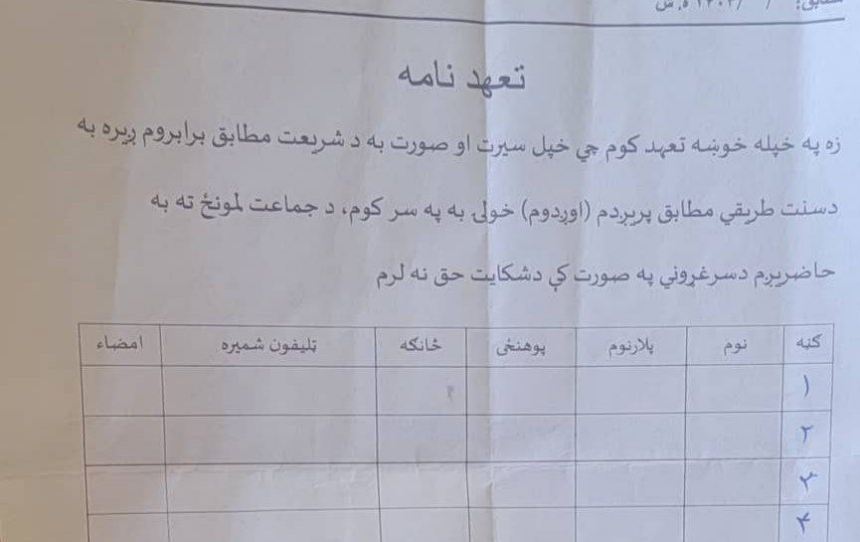 تعهد نامه
زه په خپله خوښه تعهد کوم چي خپل سيرت او صورت به د شريعت مطابق برابروم ږيره به
دسنت طريقي مطابق پرېږدم (اوږدوم) خولۍ به په سر کوم، د جماعت لمونځ ته به
حاضريږم دسرغړوني په صورت کې دشکايت حق نه لرم
کڼه نوم پلارنوم پوهنځی څانګه ټليفون شميره امضاء
۱
۲
۳
۴